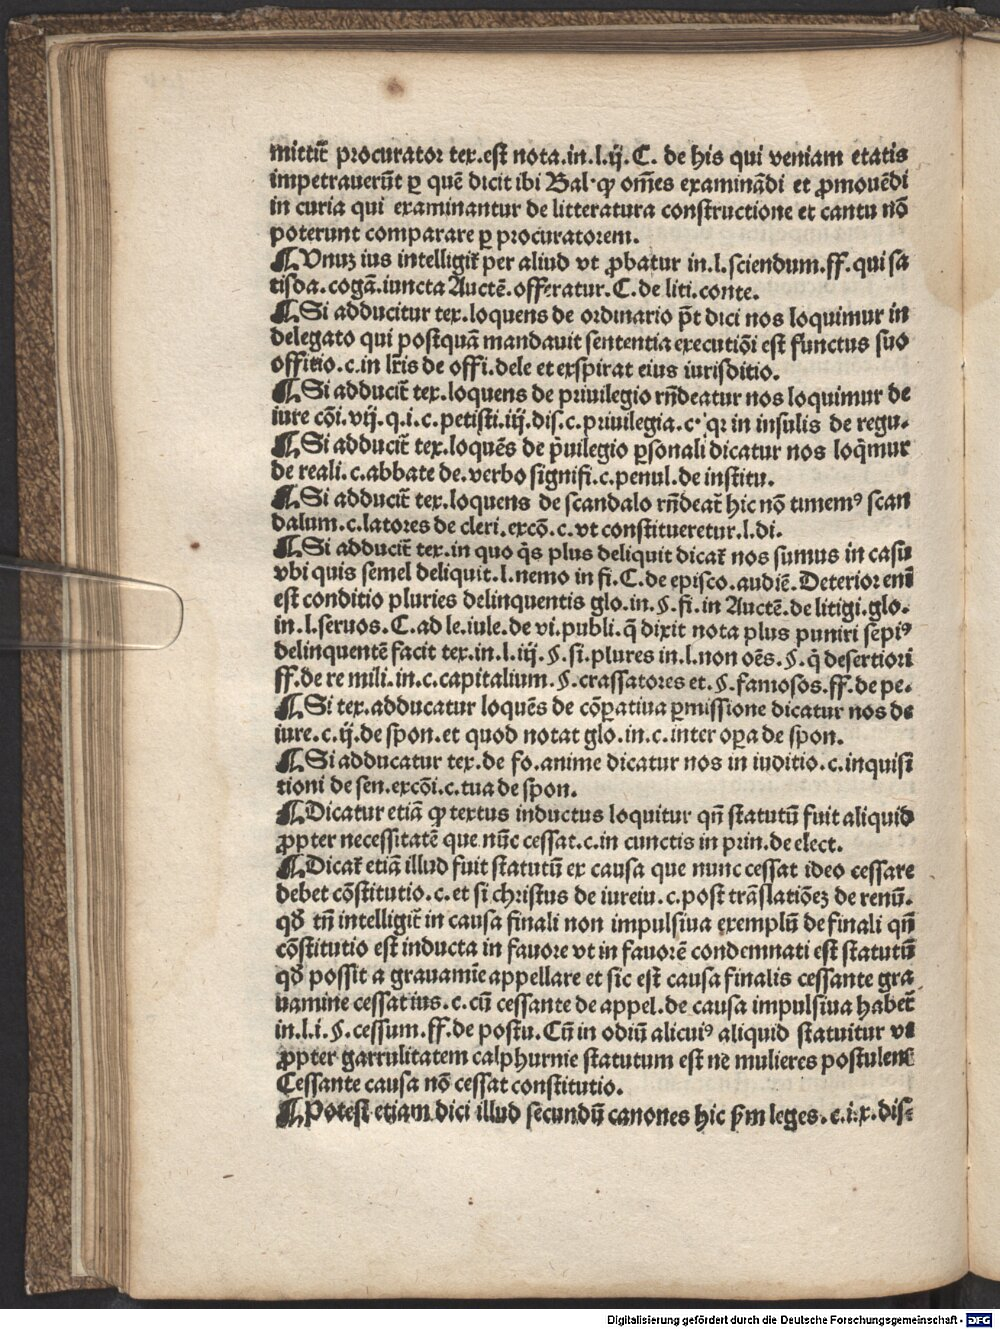 mittit᷑ procurator tex.est nota.in.l.ij.C. de his qui veniam etatis
impetrauerūt ꝑ quē dicit ibi Bal·ꝙ om̄es examinādi et ꝓmouēdi
in curia qui examinantur de litteratura constructione et cantu nō
poterunt comparare ꝑ procuratorem.
¶ Unuꝫ ius intelligit᷑ per aliud vt ꝓbatur in.l.sciendum.ff.qui sa
tisda.cogā.iuncta Auctē.offeratur.C.de liti.conte.
¶ Si adducitur tex.loquens de ordinario p̄t dici nos loquimur in
delegato qui postquā mandauit sententia executiōi est functus suo
offitio.c.in lr̄is de offi.dele et exspirat eius iurisditio.
¶ Si adducit᷑ tex.loquens de priuilegio rn̄deatur nos loquimur de
iure cōi.vij.q.i.c.petisti.iij.dis.c.priuilegia.c·qr in insulis de regu.
¶ Si adducit᷑ tex.loquēs de p̄uilegio ꝑsonali dicatur nos loq̄mur
de reali.c.abbate de.verbo signifi.c.penul.de institu.
¶ Si adducit᷑ tex.loquens de scandalo rn̄deat᷑ hic nō timemꝰ scan
dalum.c.latores de cleri.excō.c.vt constitueretur.l.di.
¶ Si adducit᷑ tex.in quo q̄s plus deliquit dicat᷑ nos sumus in casu
vbi quis semel deliquit.l.nemo in fi.C.de episco.audiē.Deterior eni
est conditio pluries delinquentis glo.in.§.fi.in Auctē.de litigi.glo.
in.l.seruos.C.ad le.iule.de vi.publi.q̄ dixit nota plus puniri sepiꝰ
delinquentē facit tex.in.l.iij.§.si.plures in.l.non oēs.§.q̄ desertiori
ff.de re mili.in.c.capitalium.§.crassatores et.§.famosos.ff.de pe.
¶ Si tex.adducatur loquēs de cōꝑatiua ꝑmissione dicatur nos de
iure.c.ij.de spon.et quod notat glo.in.c.inter oꝑa de spon.
¶ Si adducatur tex.de fo.anime dicatur nos in iuditio.c.inquisi
tioni de sen.excōi.c.tua de spon.
¶ Dicatur etiā ꝙ textus inductus loquitur qn̄ statutū fuit aliquid
ꝓpter necessitatē que nūc cessat.c.in cunctis in prin.de elect.
¶ Dicat᷑ etiā illud fuit statutū ex causa que nunc cessat ideo cessare
debet cōstitutio.c.et si christus de iureiu.c.post trāslatiōeꝫ de renū.
qđ tn̄ intelligit᷑ in causa finali non impulsiua exemplū de finali qn̄
cōstitutio est inducta in fauore vt in fauorē condemnati est statutū
qđ possit a grauamīe appellare et sic est causa finalis cessante gra
uamine cessat ius.c.cū cessante de appel.de causa impulsiua habet᷑
in.l.i.§.cessum.ff.de postu.Cū in odiū alicuiꝰ aliquid statuitur vt
ꝓpter garrulitatem calphurnie statutum est ne mulieres postulent
Cessante causa nō cessat constitutio.
¶ Potest etiam dici illud secundū canones hic ẜm leges.c.i.x.dis.
Digitalisierung gefördert durch die Deutsche Forschungsgemeinschaft - DFG